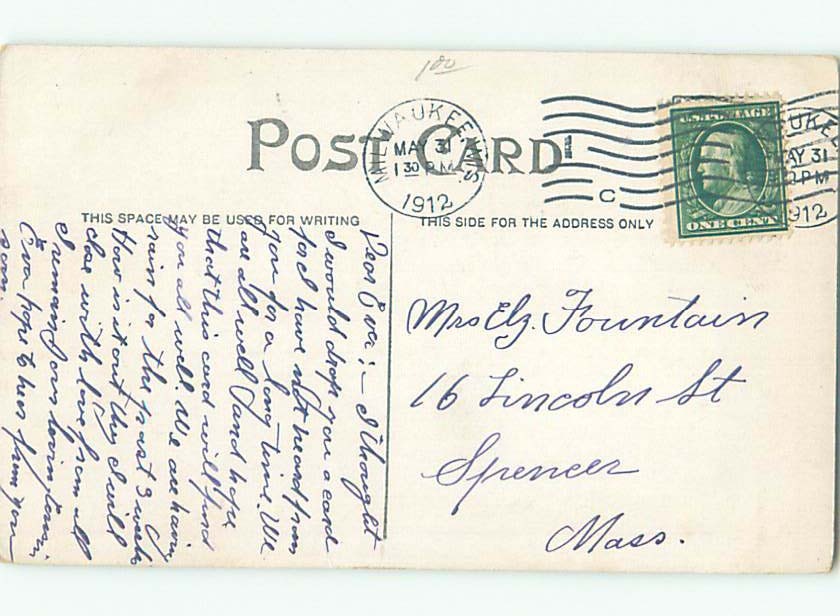 100
POST CARD
MILWAUKEE, WIS.
MAY 31
1 30 P.M.
1912
C
U.S. POSTAGE
ONE CENT
UKEE
AY 31
30 PM
912
THIS SPACE MAY BE USED FOR WRITING
THIS SIDE FOR THE ADDRESS ONLY
Dear Eva:- I thought
I would drop you a card
for I have not heard from
you for a long time. We
are all well and hope
that this card will find
you all well. We are having
rain for the past 3 weeks
How is it out there I will
close with love from all
I remain your loving cousin
Eva hope to hear from you
soon.
Mrs Elz. Fountain
16 Lincoln St
Spencer
Mass.